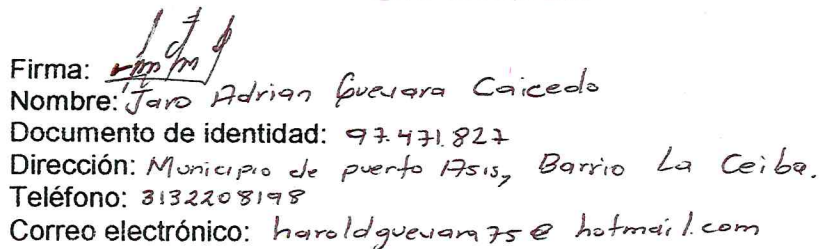 Firma:
Nombre: Jaro Adrian Guevara Caicedo
Documento de identidad: 97.471.827
Dirección: Municipio de puerto Asis, Barrio La Ceiba.
Teléfono: 3132208198
Correo electrónico: haroldguevara75@hotmail.com